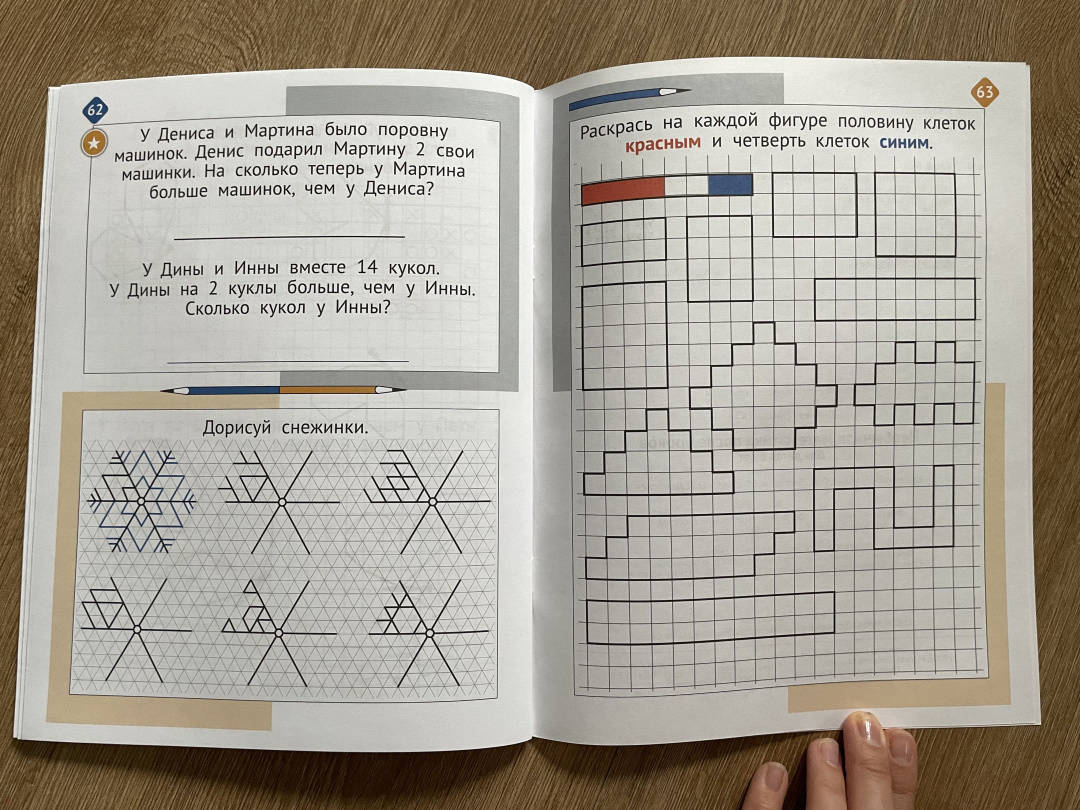 62
У Дениса и Мартина было поровну
машинок. Денис подарил Мартину 2 свои
машинки. На сколько теперь у Мартина
больше машинок, чем у Дениса?
У Дины и Инны вместе 14 кукол.
У Дины на 2 куклы больше, чем у Инны.
Сколько кукол у Инны?
Дорисуй снежинки.
63
Раскрась на каждой фигуре половину клеток
красным и четверть клеток синим.